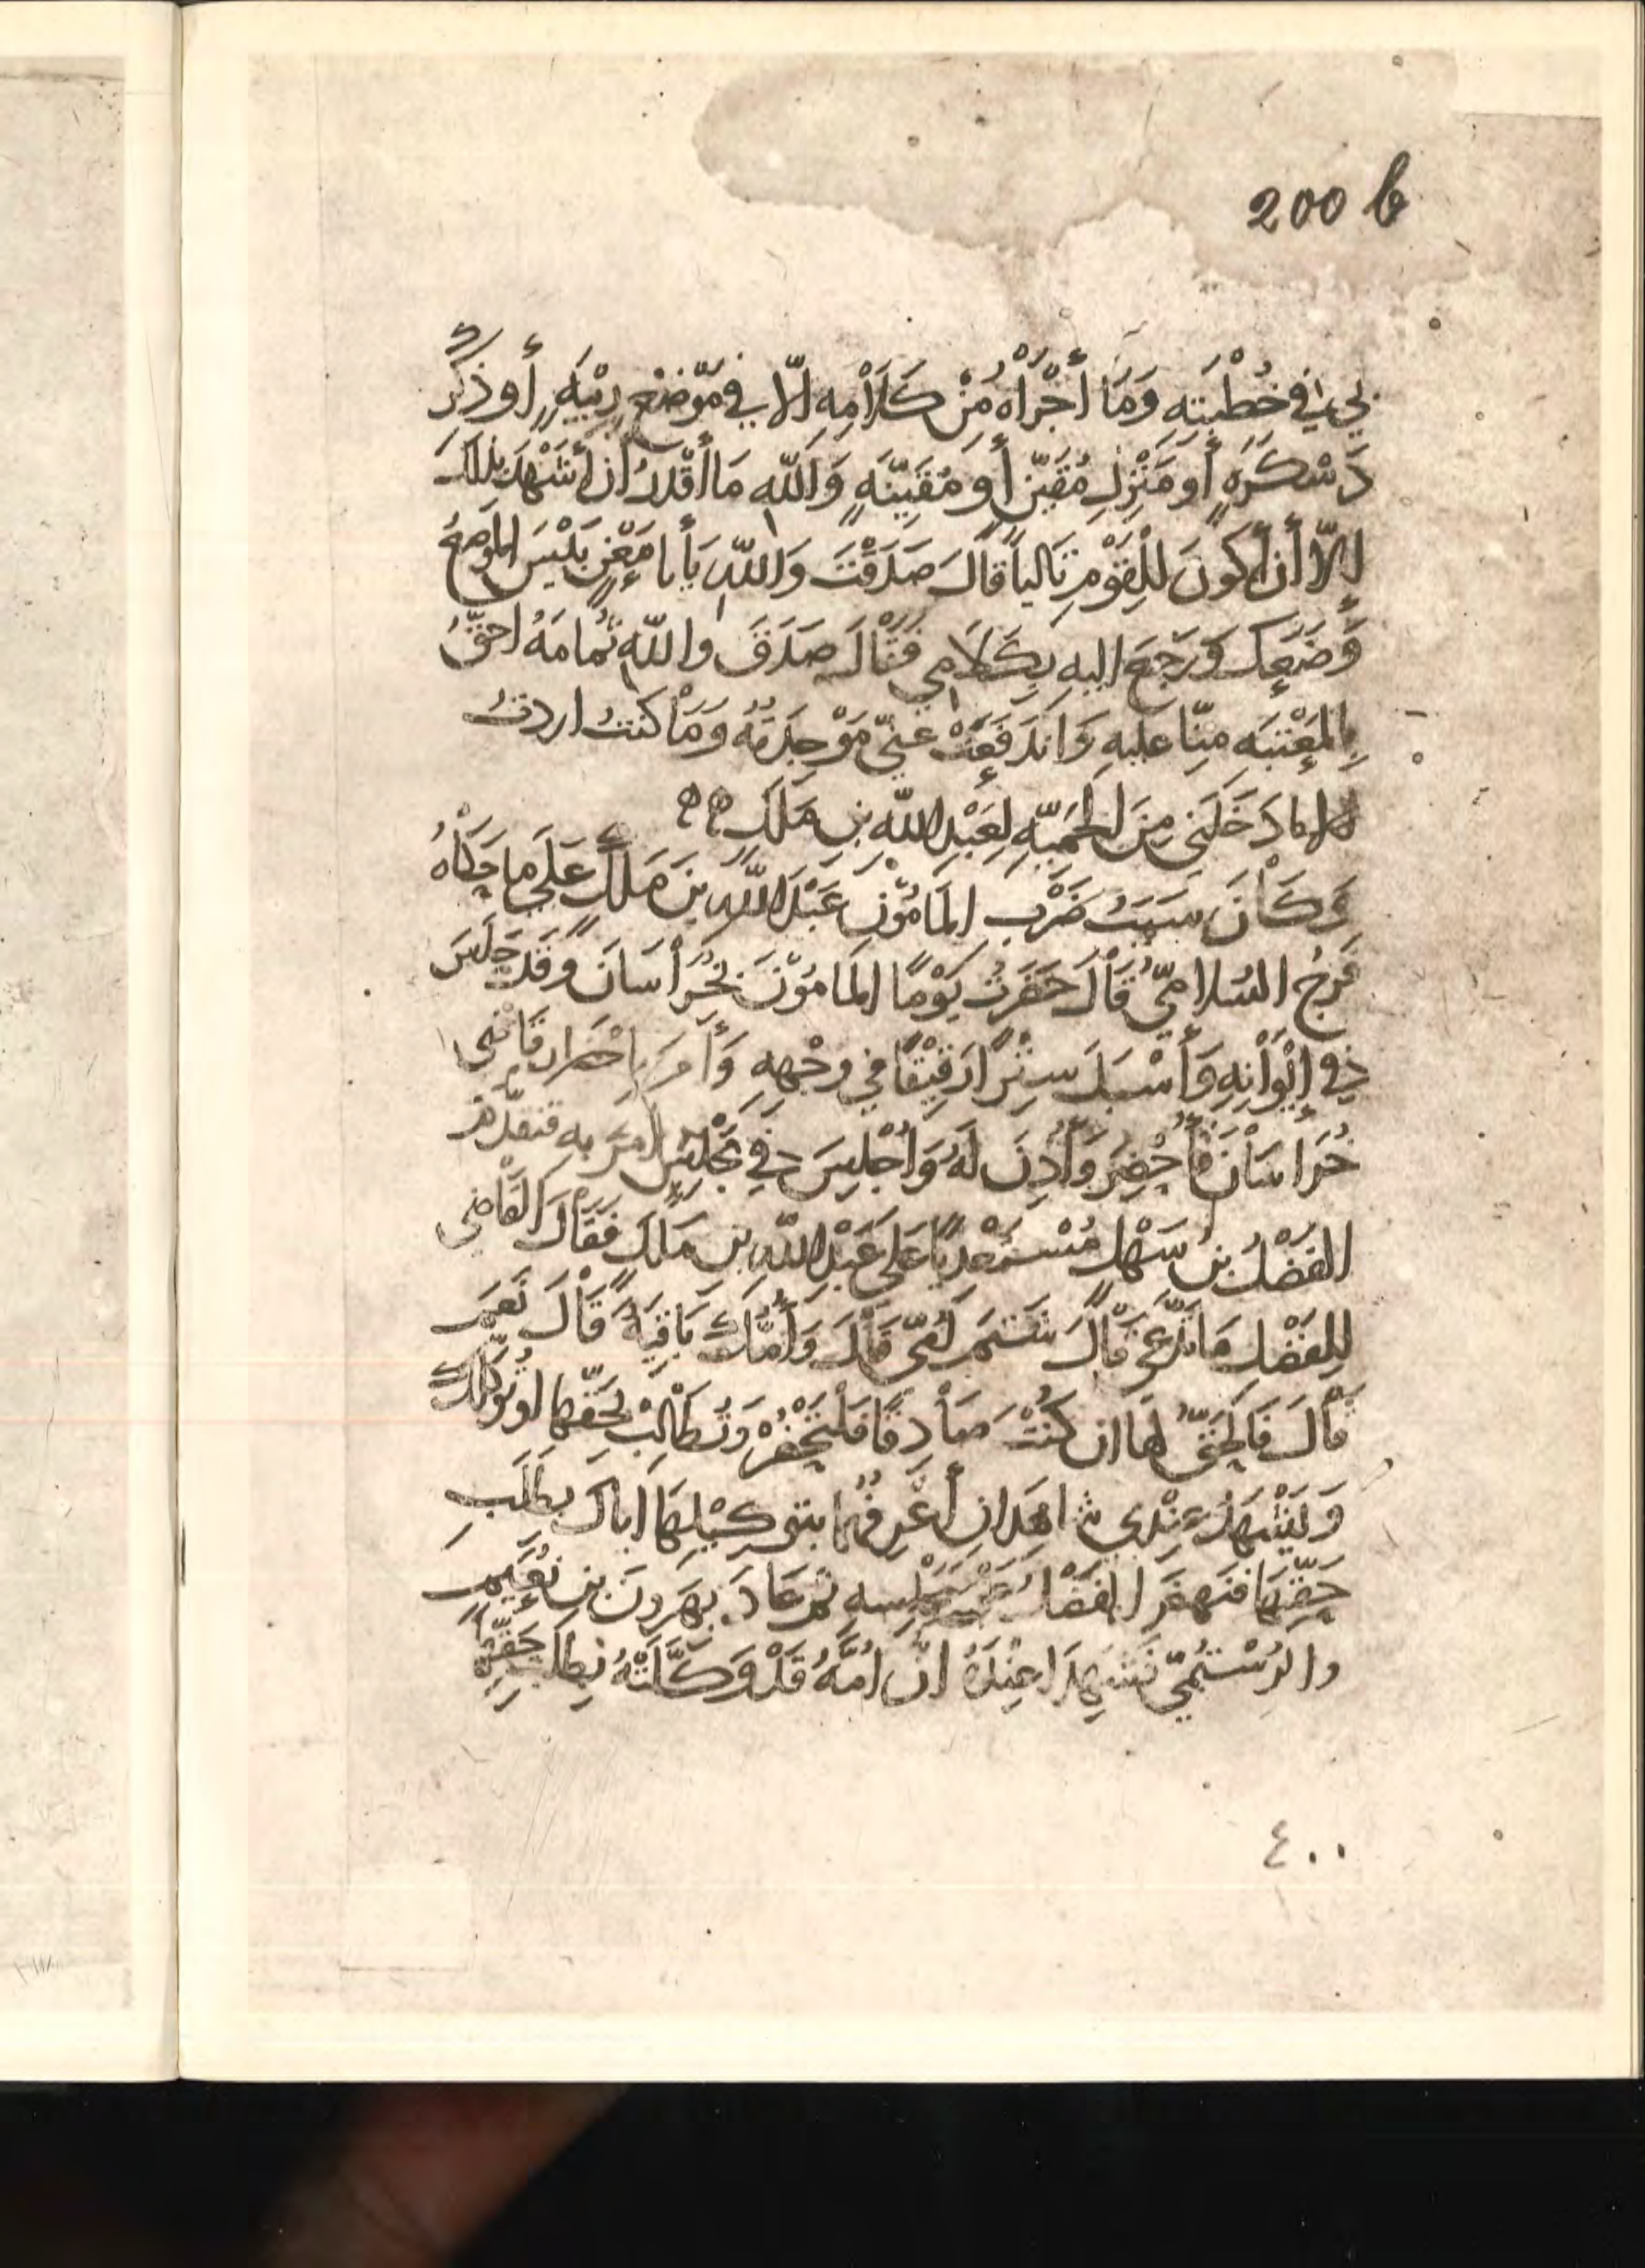 200 b
بي في خُطْبَتِهِ وَمَا أَجْرَاهُ مِنْ كَلَامِهِ إلّا في مَوْضِعِ رِيْبَةٍ أو ذِكْرِ
دَسْكَرَةٍ أو مَنْزِلِ مُقَيِّنٍ أو مُقَيِّنَةٍ وَاللّهِ مَا أَقْدِرُ أن أَشْهَدَ بِذَلِكَ
إلّا أن أكونَ لِلْقَوْمِ ثَالِثاً قَالَ صَدَقْتَ وَاللّهِ يَأبا مَعْنٍ بَلَيْسَ الموضعُ
وَضَعَكَ وَرَجَعَ اليهِ بِكَلَامِي فَقَالَ صَدَقَ واللّهِ ثُمَامَةُ احقُّ
بِالمَعْتَبَةِ مِنّا عليهِ وَانْدَفَعَتْ عَنّي مَوْجِدَتُهُ وَمَا كنتُ اردتُ
دَخَلَني مِنَ الحَمِيّةِ لِعَبْدِ اللّهِ بنِ مَلِكٍ
وَكَانَ سَبَبُ ضَرْبِ المَامُوْنِ عَبْدَ اللّهِ بنَ مَلِكٍ عَلَى ما حَكَاهُ
فَرَجُ السُلامِيّ قَالَ حَضَرْتُ يَوْمًا المَامُوْنَ بِخُرَاسَانَ وَقَد جَلَسَ
في إيْوَانِهِ وَأَسْبَلَ سِتْرًا رَقِيْقًا في وجْهِهِ وَأَمَرَ بِاحْضَار قَاضِى
خُرَاسَانَ فَأُحْضِرَ وَأُذِنَ لَهُ وَأُجْلِسَ في مَجْلِسٍ أمَرَ بِهِ فتقدّم
الفَضْلُ بنُ سَهْلٍ مُسْتَعْدِيًا عَلى عَبْدِ اللّهِ بن مَلِكٍ فَقَالَ القَاضِى
لِلفَضْلِ مَا تَدَّعِى قَالَ شَتَمَ أُمّى قَالَ وَأُمُّكَ بَاقِيَةٌ قَالَ نَعَم
قَالَ فَالحَقُّ لهَا ان كُنْتَ صَادِقًا فَلْتَحْضُرْ وَتُطَالِبْ بِحَقِّها او تُوَكِّلكَ
وَلْيَشْهَدْ عِنْدِي شاهِدَانِ أَعْرِفُهُما بِتَوكِيْلِهَا اياكَ بِطَلَبِ
حَقِّهَا فَنَهَضَ الفَضْلُ عَنْ مَجْلِسِه ثم عَادَ بِهَرونَ بنِ نُعَيمٍ
والرُسْتُمِيّ فَشَهِدَا عِنْدَهُ انّ اُمَّهُ قَدْ وَكَّلَتْهُ بِطَلَبِ حَقِّهَا
٤٠٠